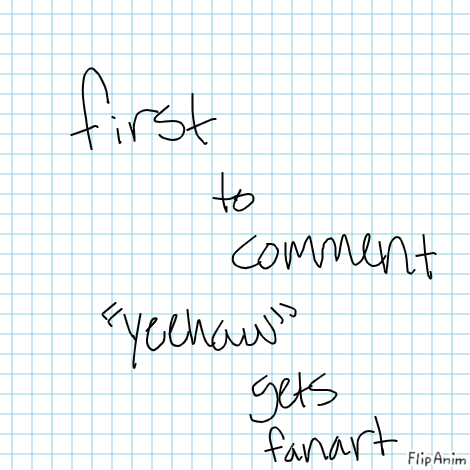 first
to
comment
"yeehaw"
gets
fanart
FlipAnim